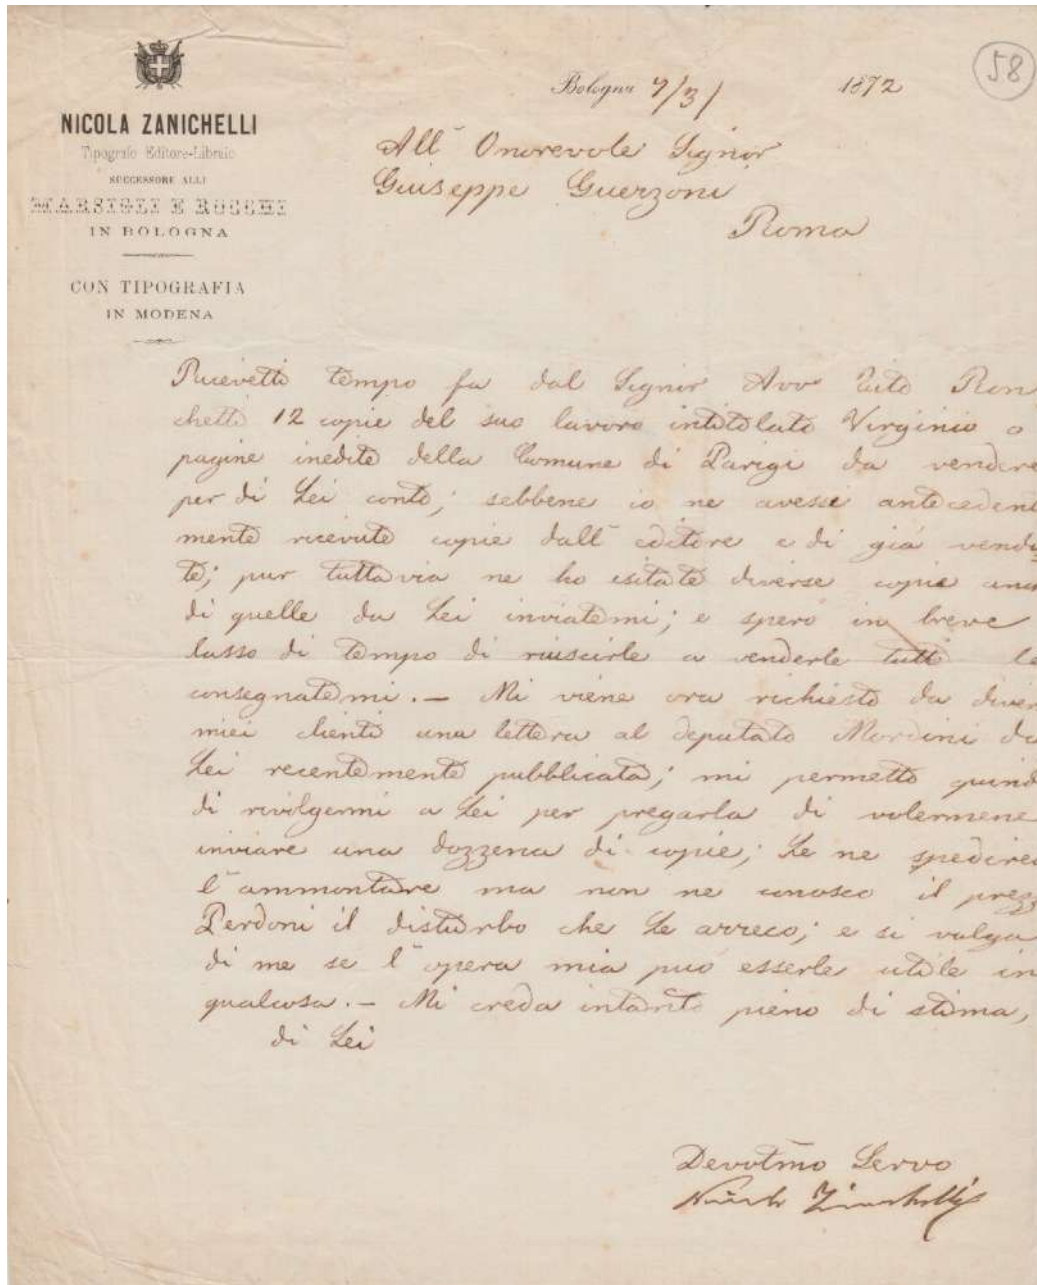 58
Bologna 7/3/ 1872
NICOLA ZANICHELLI
Tipografo Editore-Libraio
SUCCESSORE ALLI
MARSIGLI E ROCCHI
IN BOLOGNA
CON TIPOGRAFIA
IN MODENA
All' Onorevole Signor
Giuseppe Guerzoni
Roma
Ricevetti tempo fa dal Signor Avv Tito Ron
chetti 12 copie del suo lavoro intitolato Virginio o
pagine inedite della Comune di Parigi da vendere
per di Lei conto; sebbene io ne avessi antecedent
mente ricevute copie dall' editore e di già vendu
te; pur tuttavia ne ho esitate diverse copie anc
di quelle da Lei inviatemi; e spero in breve
lasso di tempo di riuscirle a venderle tutte le
consegnatemi. – Mi viene ora richiesto da diver
miei clienti una lettera al deputato Mordini da
Lei recentemente pubblicata; mi permetto quind
di rivolgermi a Lei per pregarla di volermene
inviare una dozzena di copie; Le ne spedirei
l'ammontare ma non ne conosco il prezz
Perdoni il disturbo che Le arreco; e si valga
di me se l'opera mia può esserle utile in
qualcosa. – Mi creda intanto pieno di stima,
di Lei
Devotmo Servo
Nicola Zanichelli